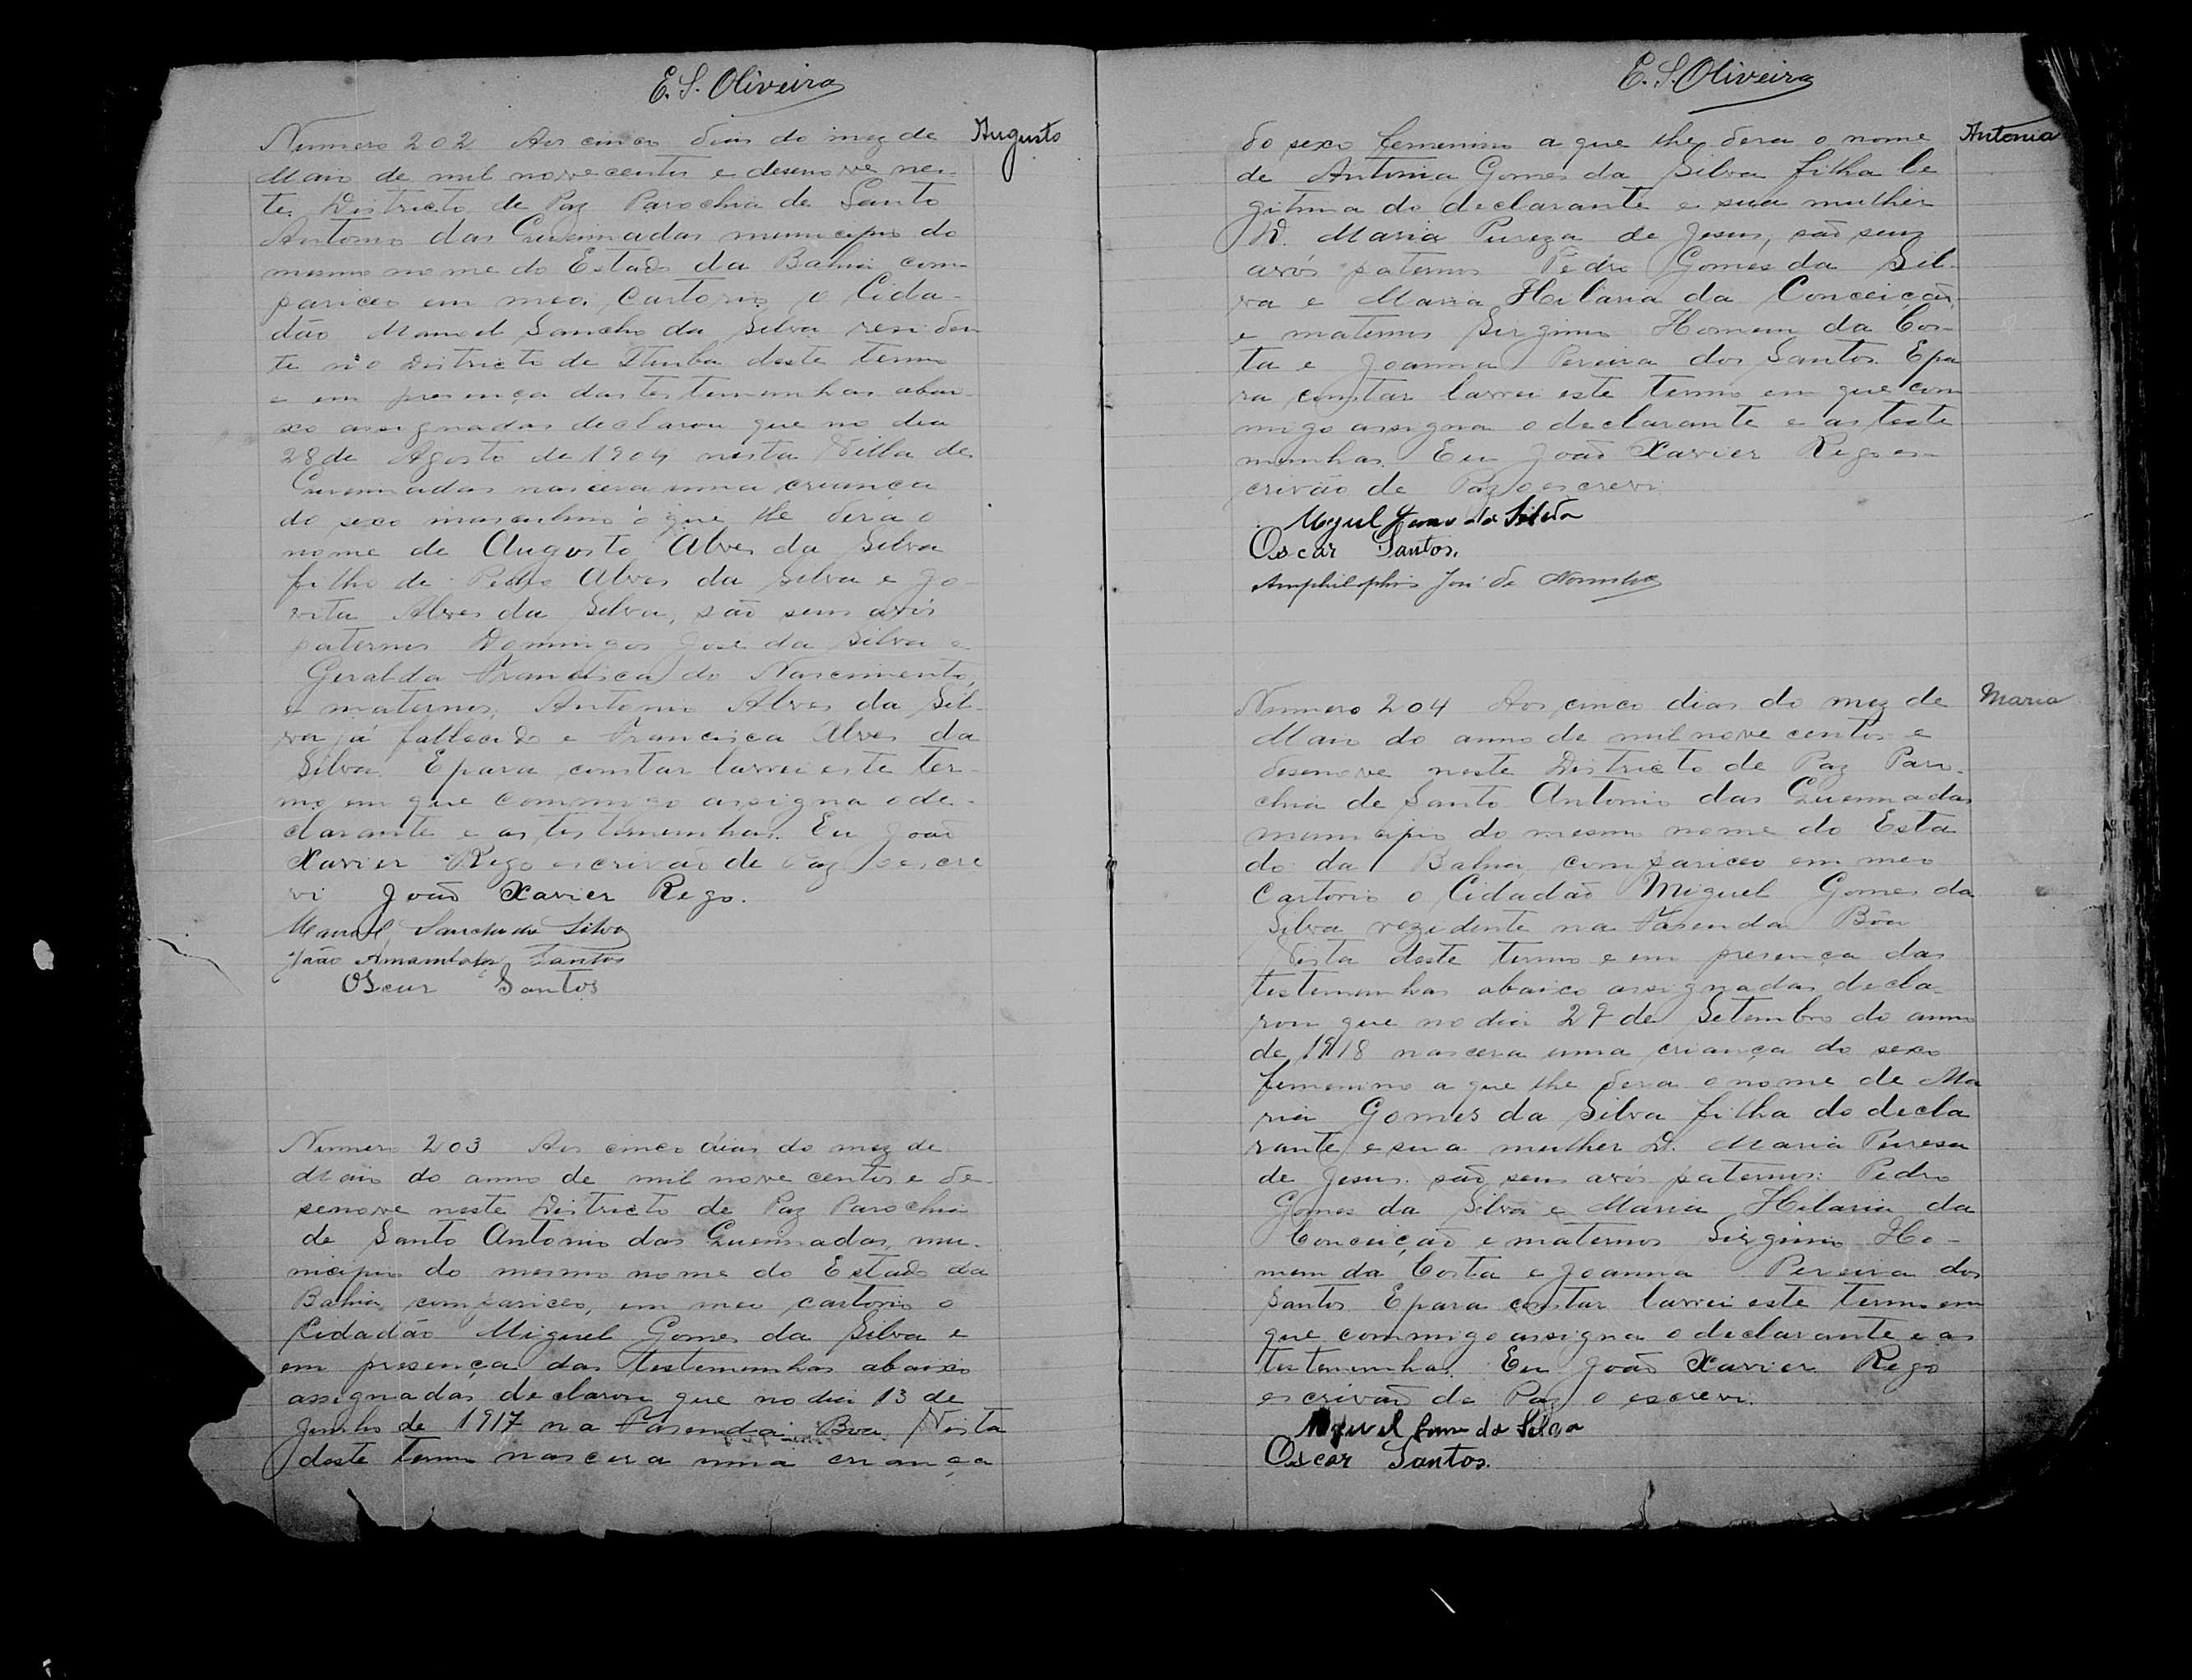 E. S. Oliveira
Numero 202 Aos cinco dias do mez de
Augusto
Maio de mil novecentos e desenove nes-
te Districto de Paz Parochia de Santo
Antonio das Queimadas municipio do
mesmo nome do Estado da Bahia com-
pariceo em meo Cartorio o Cida-
dão Manoel Sancho da Silva residen
te no Districto de Itiuba deste termo
e em presença das testemunhas abai-
xo assignadas declarou que no dia
28 de Agosto de 1904 nesta Villa de
Queimadas nascera uma criança
do sexo masculino o que lhe dera o
nome de Augusto Alves da Silva
filho de Pedro Alves da Silva e Jo-
vita Alves da Silva, são seus avós
paternos Domingos José da Silva e
Geralda Francisca do Nascimento,
e maternos, Antonio Alves da Sil-
va já fallecido e Francisca Alves da
Silva. E para constar lavrei este ter-
mo em que commigo assigna o de-
clarante e as testemunhas. Eu João
Xavier Rego escrivão de Paz o escre
vi João Xavier Rego.
Manoel Sancho da Silva
João Santos
Oscar Santos
Numero 203 Aos cinco dias do mez de
Maio do anno de mil nove centos e de-
senove neste Districto de Paz Parochia
de Santo Antonio das Queimadas, mu-
nicipio do mesmo nome do Estado da
Bahia compariceo, em meu cartorio o
Cidadão Miguel Gomes da Silva e
em presença das testemunhas abaixo
assignadas declarou que no dia 13 de
Junho de 1917 na Fasenda Boa Vista
deste termo nascera uma criança
E. S. Oliveira
do sexo femenino a que lhe dera o nome
Antonia
de Antonia Gomes da Silva filha le
gitima do declarante e sua mulher
D. Maria Pureza de Jesus, são seus
avós paternos Pedro Gomes da Sil-
va e Maria Hilaria da Conceição,
e maternos Sirginio Homem da Cos-
ta e Joanna Pereira dos Santos. E pa
ra constar lavrei este termo em que com
migo assigna o declarante e as teste
munhas. Eu João Xavier Rego es-
crivão de Paz o escrevi
Miguel Gomes da Silva
Oscar Santos.
Amphilophio José de Noronha
Numero 204 Aos cinco dias do mez de
Maria
Maio do anno de mil nove centos e
desenove neste Districto de Paz Paro-
chia de Santo Antonio das Queimadas
municipio do mesmo nome do Esta
do da Bahia, compariceo em meo
Cartorio o Cidadão Miguel Gomes da
Silva rezidente na Fasenda Bôa
Vista deste termo e em presença das
testemunhas abaixo assignadas decla-
rou que no dia 29 de Setembro do anno
de 1918 nascera uma criança do sexo
femenino a que lhe dera o nome de Ma
ria Gomes da Silva filha do decla
rante e sua mulher D. Maria Puresa
de Jesus. são seus avós paternos: Pedro
Gomes da Silva e Maria Hilaria da
Conceição e maternos Sirginio Ho-
mem da Costa e Joanna Pereira dos
Santos E para constar lavrei este termo em
que commigo assigna o declarante e as
testemunhas. Eu João Xavier Rego
escrivão de Paz o escrevi.
Miguel Gomes da Silva
Oscar Santos.